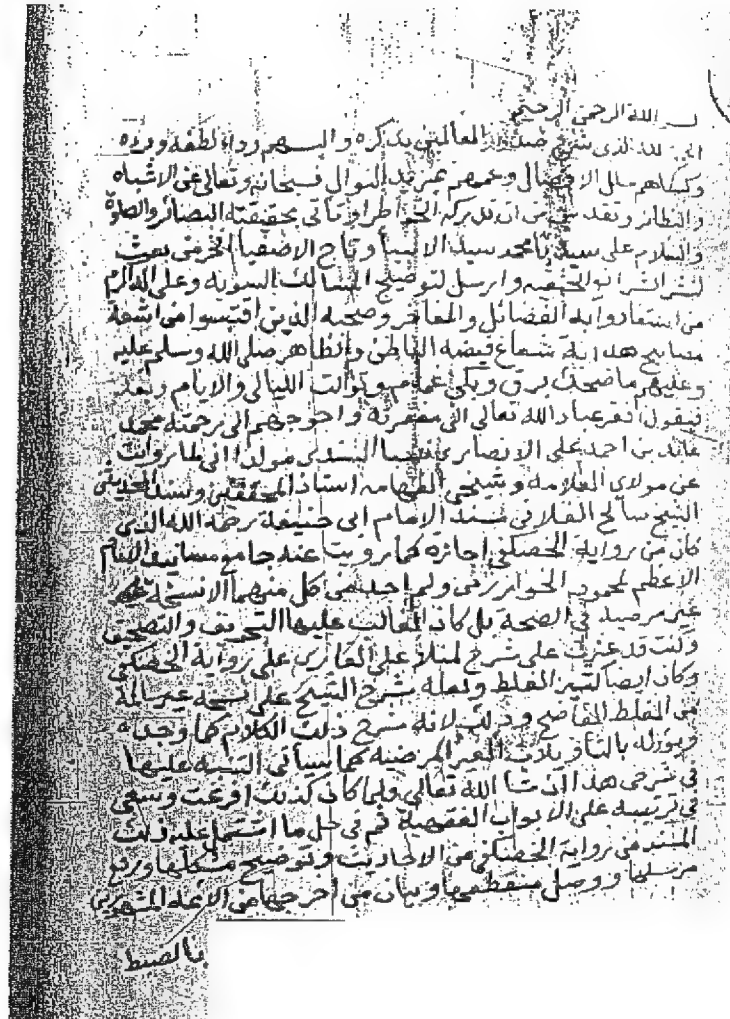 بسم الله الرحمن الرحيم
الحمد لله الذى شرح صدور العالمين بذكره والبسهم رداء لطفه وبره
وكساهم حلل الافضال وعمهم بمزيد النوال فسبحانه وتعالى عن الاشباه
والنظائر وتقدس من ان تدركه الخواطر او تأتى بحقيقته البصائر والصلوة
والسلام على سيدنا محمد سيد الانبيا وتاج الاصفيا الذى بعث
لنشر الشرائع الحنيفيه وارسل لتوضيح المسالك السويه وعلى اله
من استفاد وابه الفضائل والمفاخر وصحبه الذين اقتبسوا من اشعة
مصابيح هدايته شعاع فيضه الباطن والظاهر صلى الله وسلم عليه
وعليهم ما ضحك برق وبكى غمام وتوالت الليالى والايام وبعد
فيقول افقر عباد الله تعالى الى مغفرته واحوجهم الى رحمته محمد
عابد بن احمد على الانصارى نسبا السندى مولدا انى لما رويت
عن مولاى العلامه وشيخى الفهامه استاذ المحققين وسند المحدثين
الشيخ صالح الفلانى مسند الامام ابى حنيفة رحمه الله الذى
كان من رواية الحصكفى اجازة كما رويتا عنه جامع مسانيد الامام
الاعظم لمحمود الخوارزمى ولم اجد من كل منهما الا نسخة
غير مرضيه فى الصحة بل كان الغالب عليها التحريف والتصحيف
وكنت قد عثرت على شرح لمنلا على القارى على رواية الحصكفى
وكان ايضا كثير الغلط ولعله شرح الشيخ على نسخه غير سالمة
من الغلط الفاضح وذلك لانه شرح ذلك الكلام كما وجده
ويؤوله بالتأويلات الغير المرضيه كما يسأتى التنبيه عليها
فى شرحى هذا ان شا الله تعالى ولما كان كذلك افرغت وسعى
فى ترتيبه على الابواب الفقهية ثم فى حل ما اشتمل عليه ذلك
المسند من رواية الحصكفى من الاحاديث وبتوضيح مشكلها ورفع
مرسلها ووصل منقطعها وبيان من اخرجها من الائمه المشهورين
بالضبط